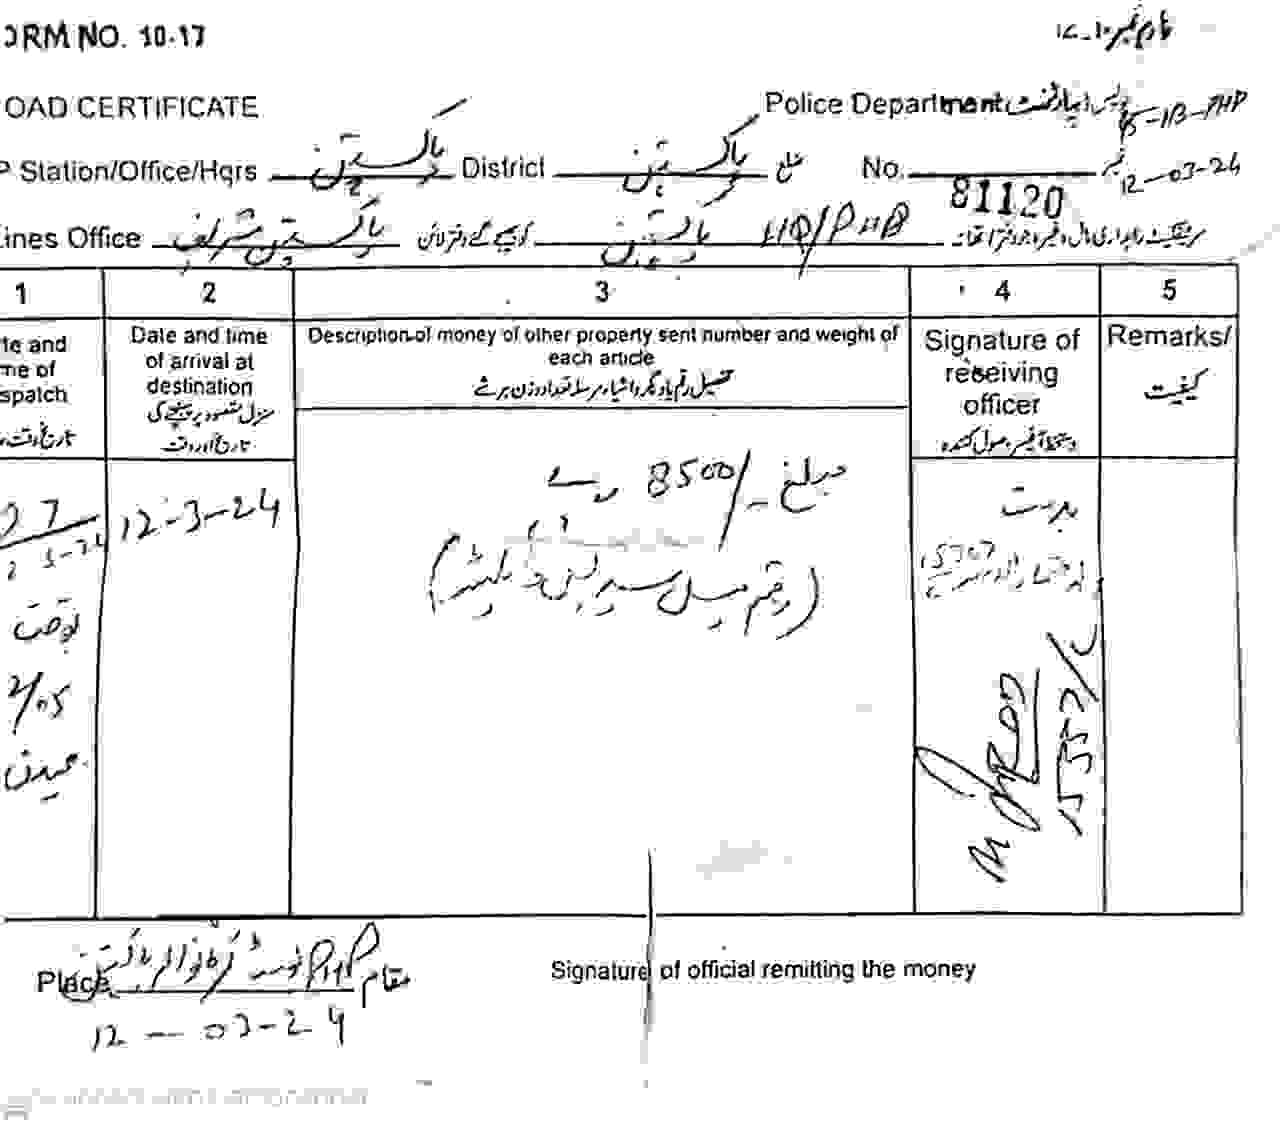 ORM NO. 10-17 فارم نمبر ۱۰-۱۷
OAD CERTIFICATE Police Department پولیس ڈیپارٹمنٹ 45-1B-PHP
P Station/Office/Hqrs پاکپتن District پاکپتن ضلع No. 81120 نمبر 12-03-24
ines Office پاکپتن شریف کو بھیجے گئے دفتر لائن پاکپتن HQ/PHP سرٹیفکیٹ راہداری مال وغیرہ جو دفتر / تھانہ
1 2 3 4 5
te and
me of
spatch
تاریخ وقت
Date and time
of arrival at
destination
منزل مقصود پر پہنچنے کی
تاریخ اور وقت
Description of money of other property sent number and weight of
each article
تفصیل رقم یا دیگر اشیاء مرسلہ تعداد وزن ہر شے
Signature of
receiving
officer
دستخط آفیسر وصول کنندہ
Remarks/
کیفیت
12-3-24
بوقت
2/05
مبلغ 8500/-
(رقم میل سیر
بدست
15707
1557/C
Place PHP پوسٹ پاکپتن مقام
12-03-24
Signature of official remitting the money